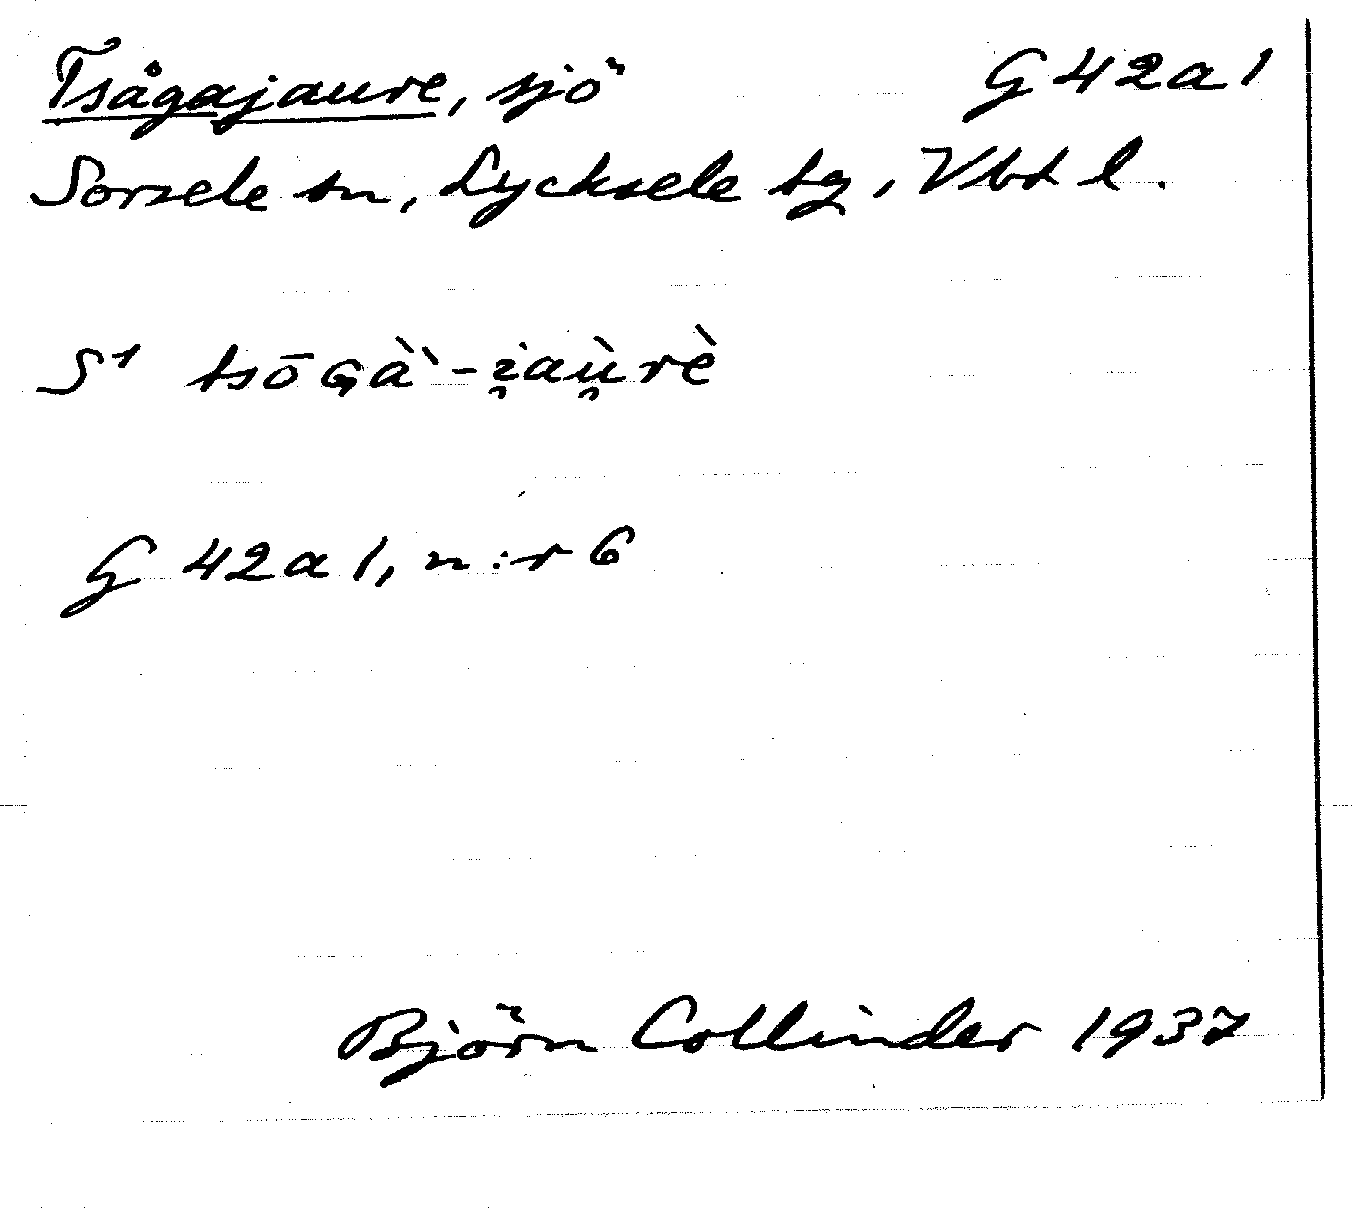 Tsågajaure, sjö G 42 a 1
Sorsele sn, Lycksele tg, Vbt l.
S¹ tsōɢ̧à̀ -i̯aù̯rè
G 42 a 1, n:r 6
Björn Collinder 1937